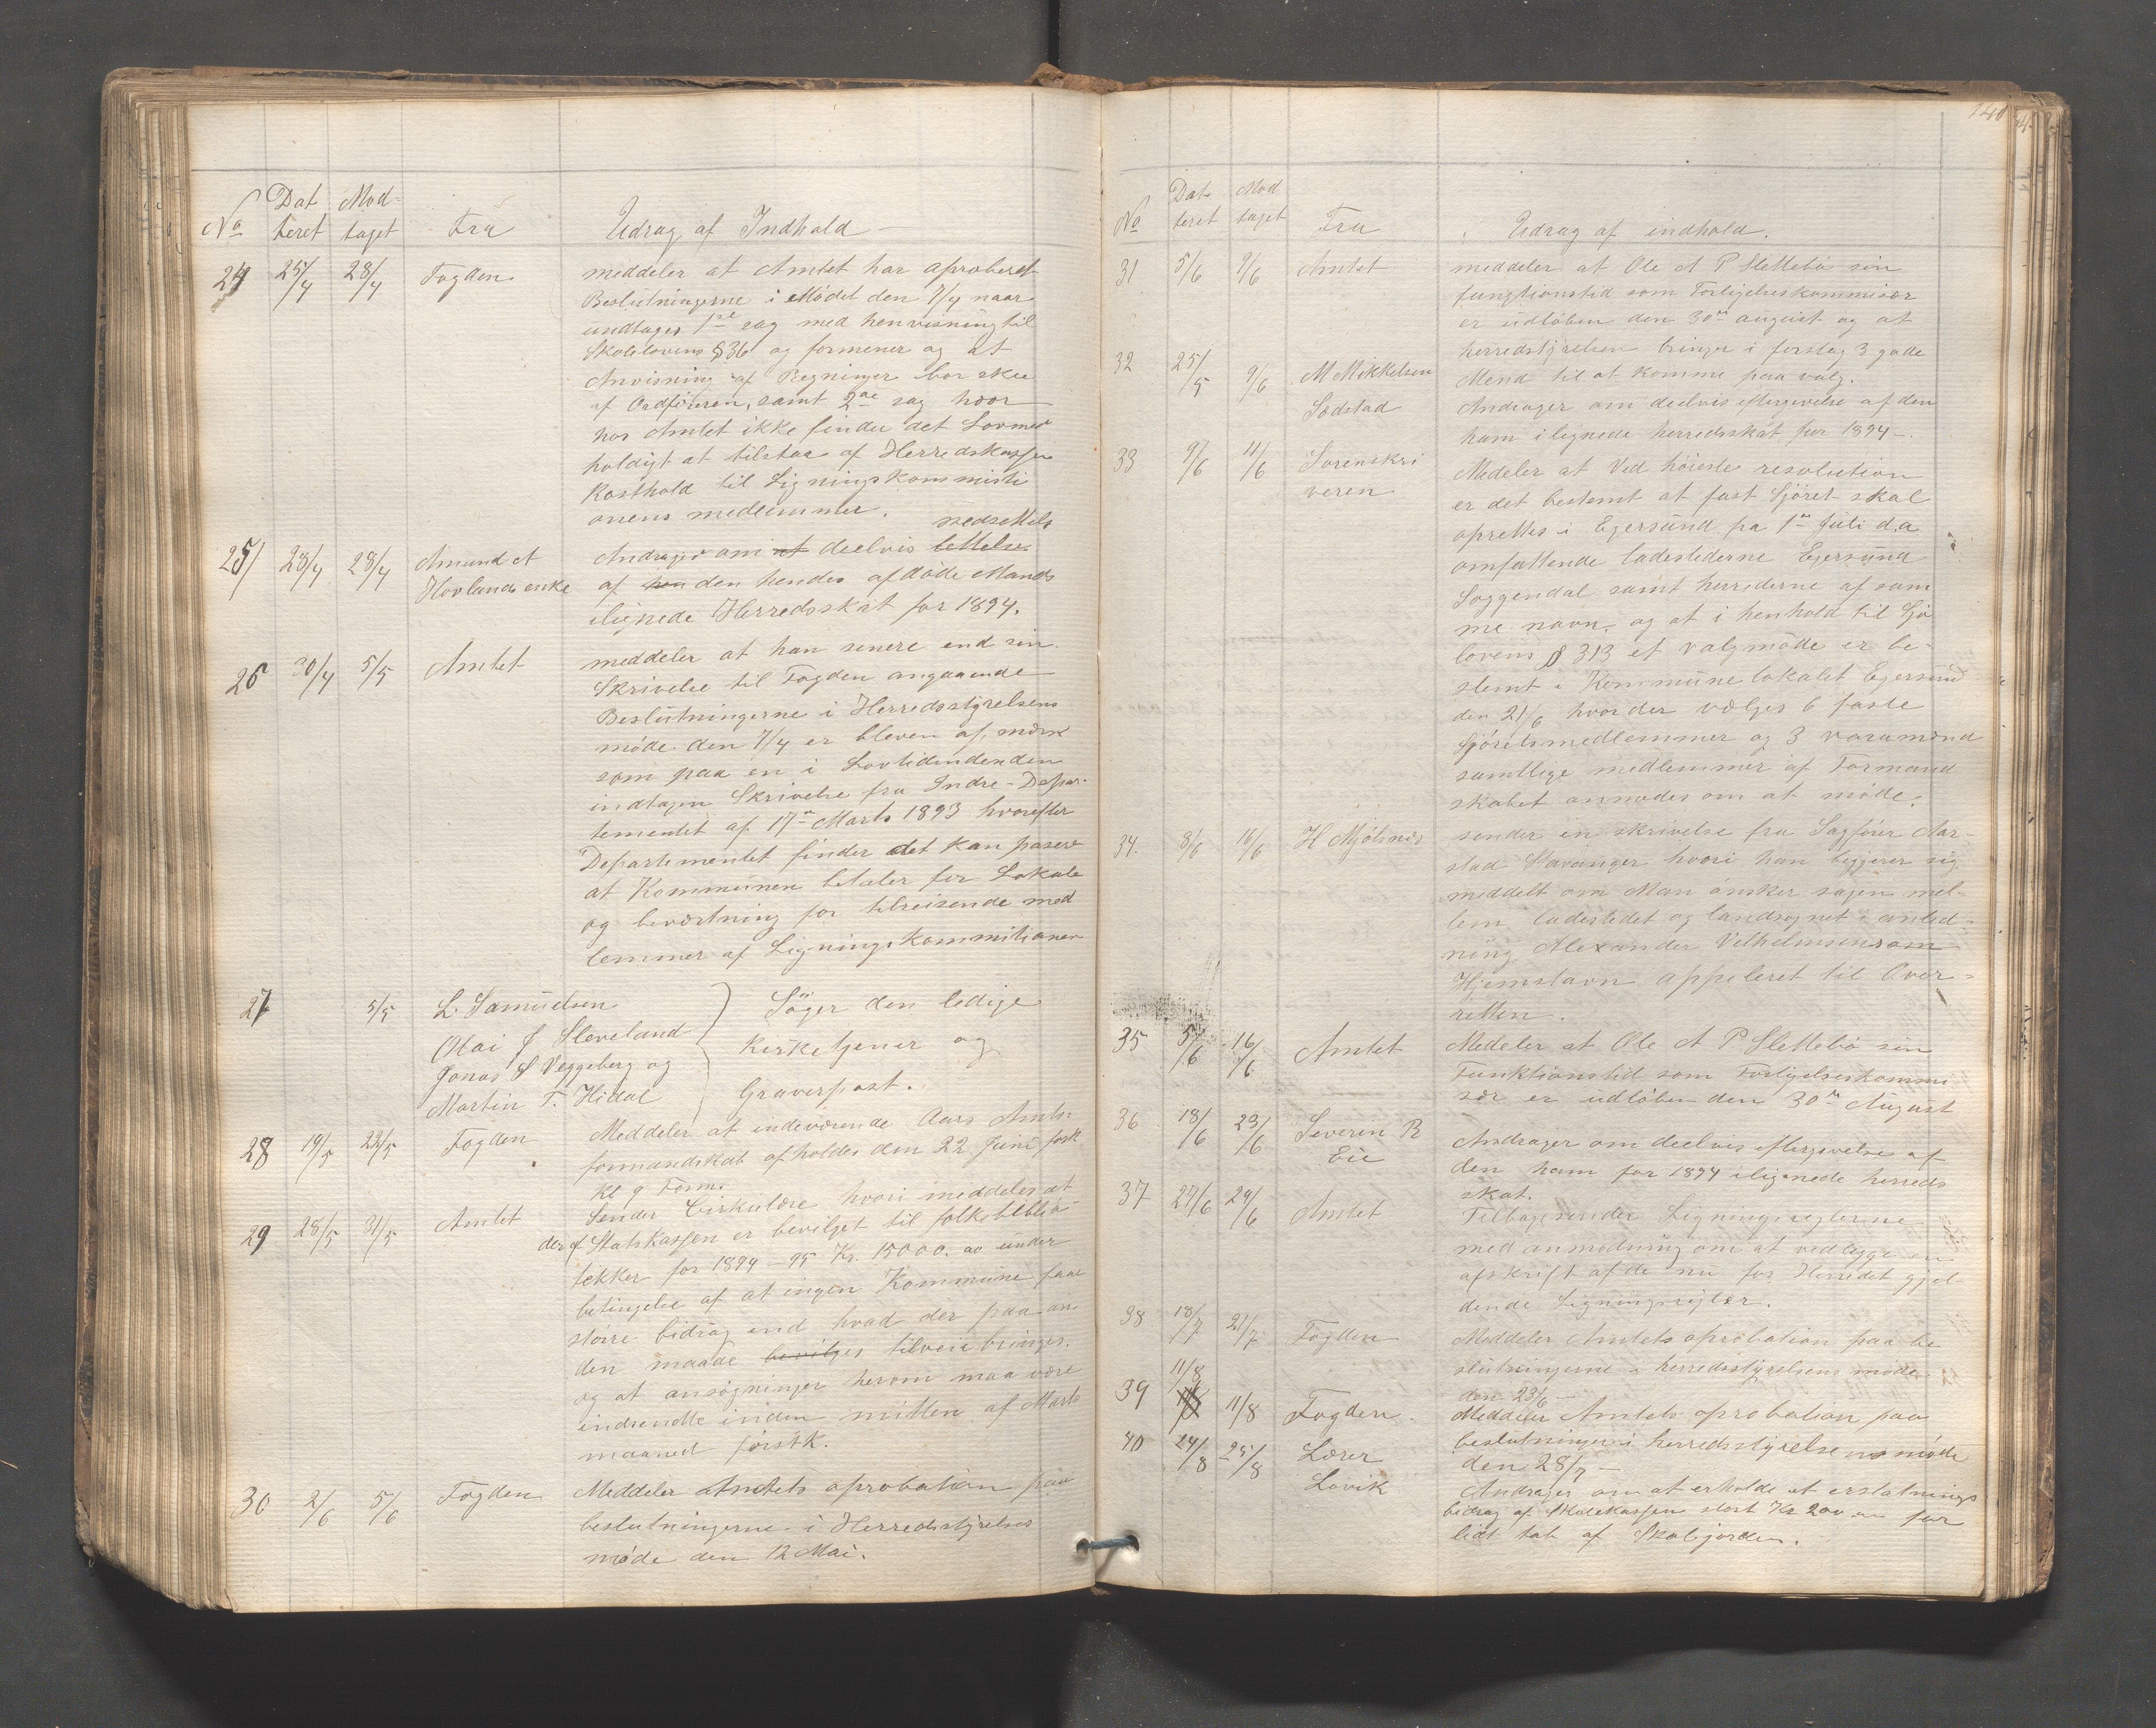 No Dat Mod-
teret taget Fra Udrag af Indhold
24 25/4 28/4 Fogden meddeler at Amtet har aproberet
Beslutningerne i Mödet den 7/4 naar
undtages 1ste sag med henvisning til
Skolelovens §36 og formener og at
Anvisning af Regninger bor skee
af Ordföreren, samt 2de sag hvor
hos Amtet ikke finder det Lovmed
holdigt at tilstaa af Herredskassen
Kosthold til Lignings kommisti
onens medlemmer.
nedsettels
25/ 28/4 28/4 Amund A Andrager om at deelvis lettelse
Hovlands enke af hen den hendes afdöde Mands
ilignede Herredsskat for 1894.
26 30/4 5/5 Amtet meddeler at han senere end sin
Skrivelse til Fogden angaaende
Beslutningerne i Herredsstyrelsens
möde den 7/4 er bleven op, mærk
som paa en i Lovtidenden den
indtagen Skrivelse fra Indre-Depar-
tementet af 17de Marts 1893 hvorefter
Departementet finder det kan pasere
at Kommunen betaler for Lokale
og beværtning for tilreisende med
lemmer af Lignings Kommitionen
27 5/5 L. Samuelsen Söger den ledige
Olai J Sleveland
Kirketjener og
Jonas S Veggeberg og
Martin T. Hidal Graverpost.
28 19/5 22/5 Fogden Meddeler at indeværende Aars Amts-
formandskab afholdes den 22 Juni fork
kl 9 Form.
29 28/5 31/5 Amtet Sender Cirkulære hvori meddeles at
der af Statskassen er bevilget til folkebiblio
tekker for 1894-95 Kr. 15000. av under
betingelse af at ingen Kommune faar
större bidrag end hvad der paa an
den maade bevilges tilveie bringes.
og at ansögninger herom maa være
indsendte inden mitten af Marts
maaned förstk.
30 2/6 5/6 Fogden Meddeler Amtets aprobation paa
beslutningerne i Herredsstyrelses
möde den 12 Mai.
140
No Dat- Mod
teret taget Fra Udrag af indhold.
31 5/6 9/6 Amtet meddeler at Ole A P Slettebö sin
fungtionstid som Forligelseskommisær
er udlöben den 30te august og at
herredstyrelsen bringer i forslag 3 gode
Mend til at komme paa valg.
32 25/5 9/6 M Mikkelsen
Sodstad Andrager om deelvis eftergivelse af den
ham ilignede herredsskat for 1894-.
33 9/6 11/6 Sorenskri
veren Medeler at Ved höieste resolution
er det bestemt at fast Sjöret skal
oprettes i Egersund pa 1te Juli d.a
omfattende ladestederne Egersund
Soggendal samt herrederne af sam
me navn. og at i henhold til Sjö
lovens § 313 et valgmöde er be-
stemt i Kommune lokalet Egersund
den 21/6 hvor der vælges 6 faste
Sjöretsmedlemmer og 3 varamænd
samtlige medlemmer af Formand
skabet anmodes om at möde.
34. 8/6 16/6 H Mjölsnæs sender en skrivelse fra Sagförer Aar-
stad Stavanger hvori han begjerer sig
meddelt om Man önsker sagen mel-
lem ladestedet og landsognet i anled-
ning Alexander Velhelmsens om
Hjemstavn appeleret til Over-
retten.
35 5/6 16/6 Amtet Medeler at Ole A P Slettebö sin
Funktionstid som Forligelseskommi
sær er udlöben den 30te August
36 18/6 23/6 Severin R
Eie Andrager om deelvis eftergivelse af
den ham for 1894 ilignede herreds
skat.
37 27/6 29/6 Amtet Tilbagesender Ligningsreglerne
med anmodning om at vedlegge en
afskrift af de nu for Herredet gjel-
dende Ligningsregler.
38 18/7 21/7 Fogden Meddeler Amtets aprobation paa be
slutningerne i herredsstyrelsens möde
den 23/6 -
39 11/8 11/8 Fogden. Meddeler Amtets aprobation paa
beslutninger i herredsstyrelsens möde
den 28/7 -
40 24/8 25/8 Lærer
Lovik Andrager om at erholde et erstatnings
bidrag af Skolekassen stort Kr 200 for
lidt tab af Skolejorden.